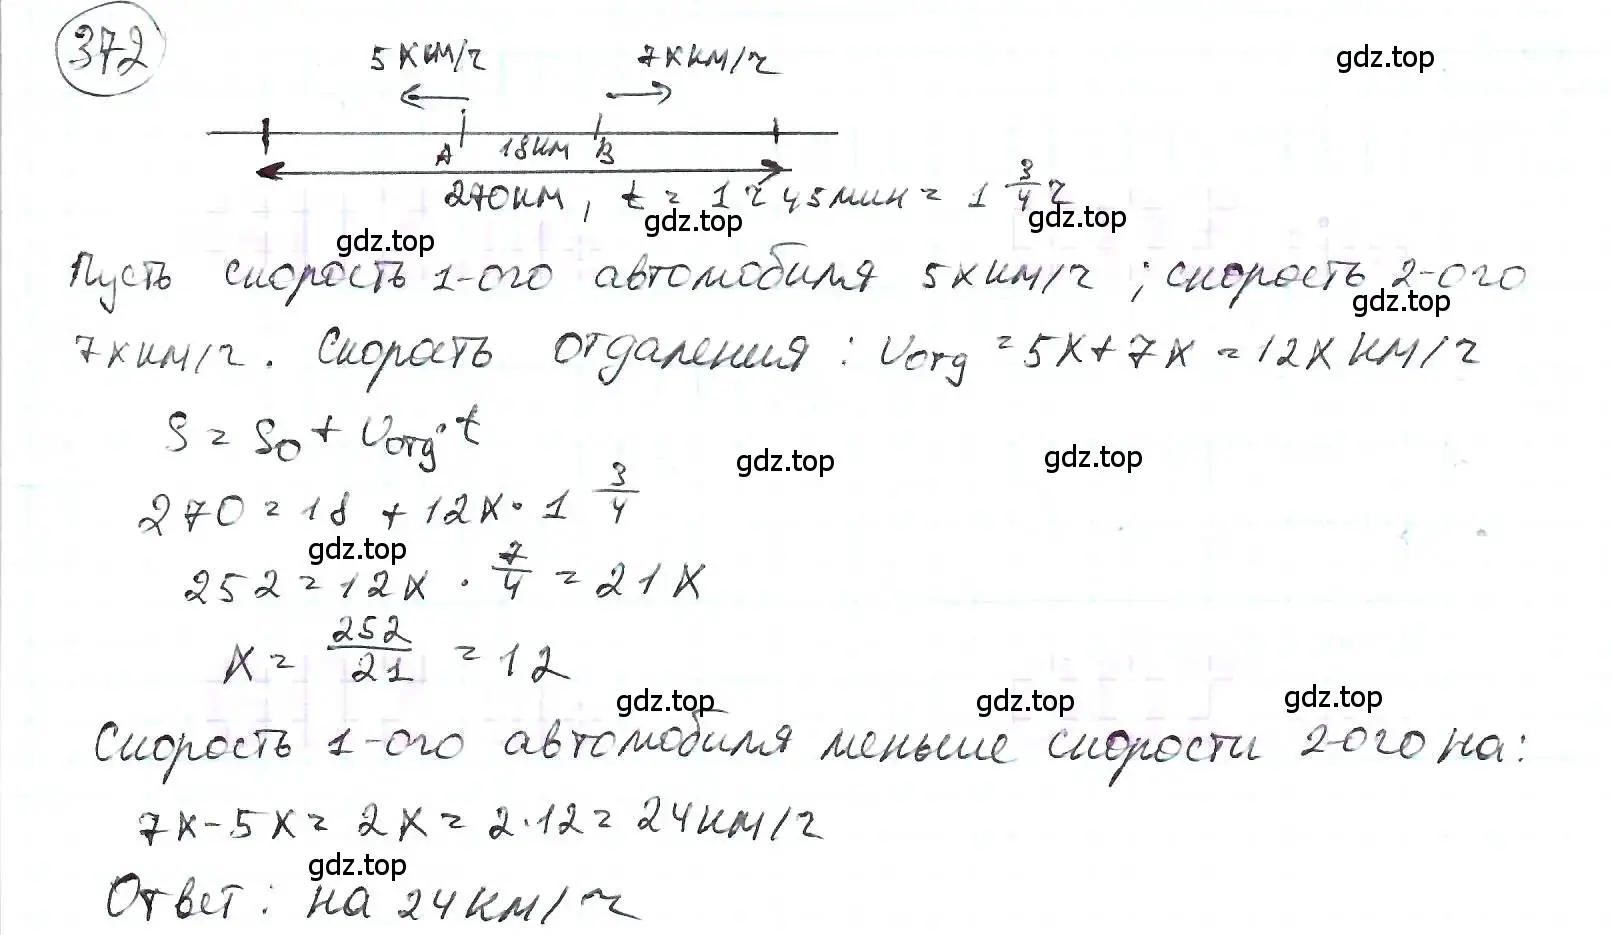 372
5х км/ч 7х км/ч gdz.top
А 18км В
270км, t = 1ч 45мин = 1 3/4 ч
gdz.top gdz.top gdz.top
Пусть скорость 1-ого автомобиля 5х км/ч ; скорость 2-ого
gdz.top
7х км/ч. Скорость отдаления : Vотд = 5х + 7х = 12х км/ч
S = S₀ + Vотд · t
gdz.top gdz.top
270 = 18 + 12х · 1 3/4
gdz.top
252 = 12х · 7/4 = 21х
х = 252/21 = 12
gdz.top gdz.top gdz.top
Скорость 1-ого автомобиля меньше скорости 2-ого на:
7х - 5х = 2х = 2·12 = 24км/ч
gdz.top
Ответ: на 24км/ч